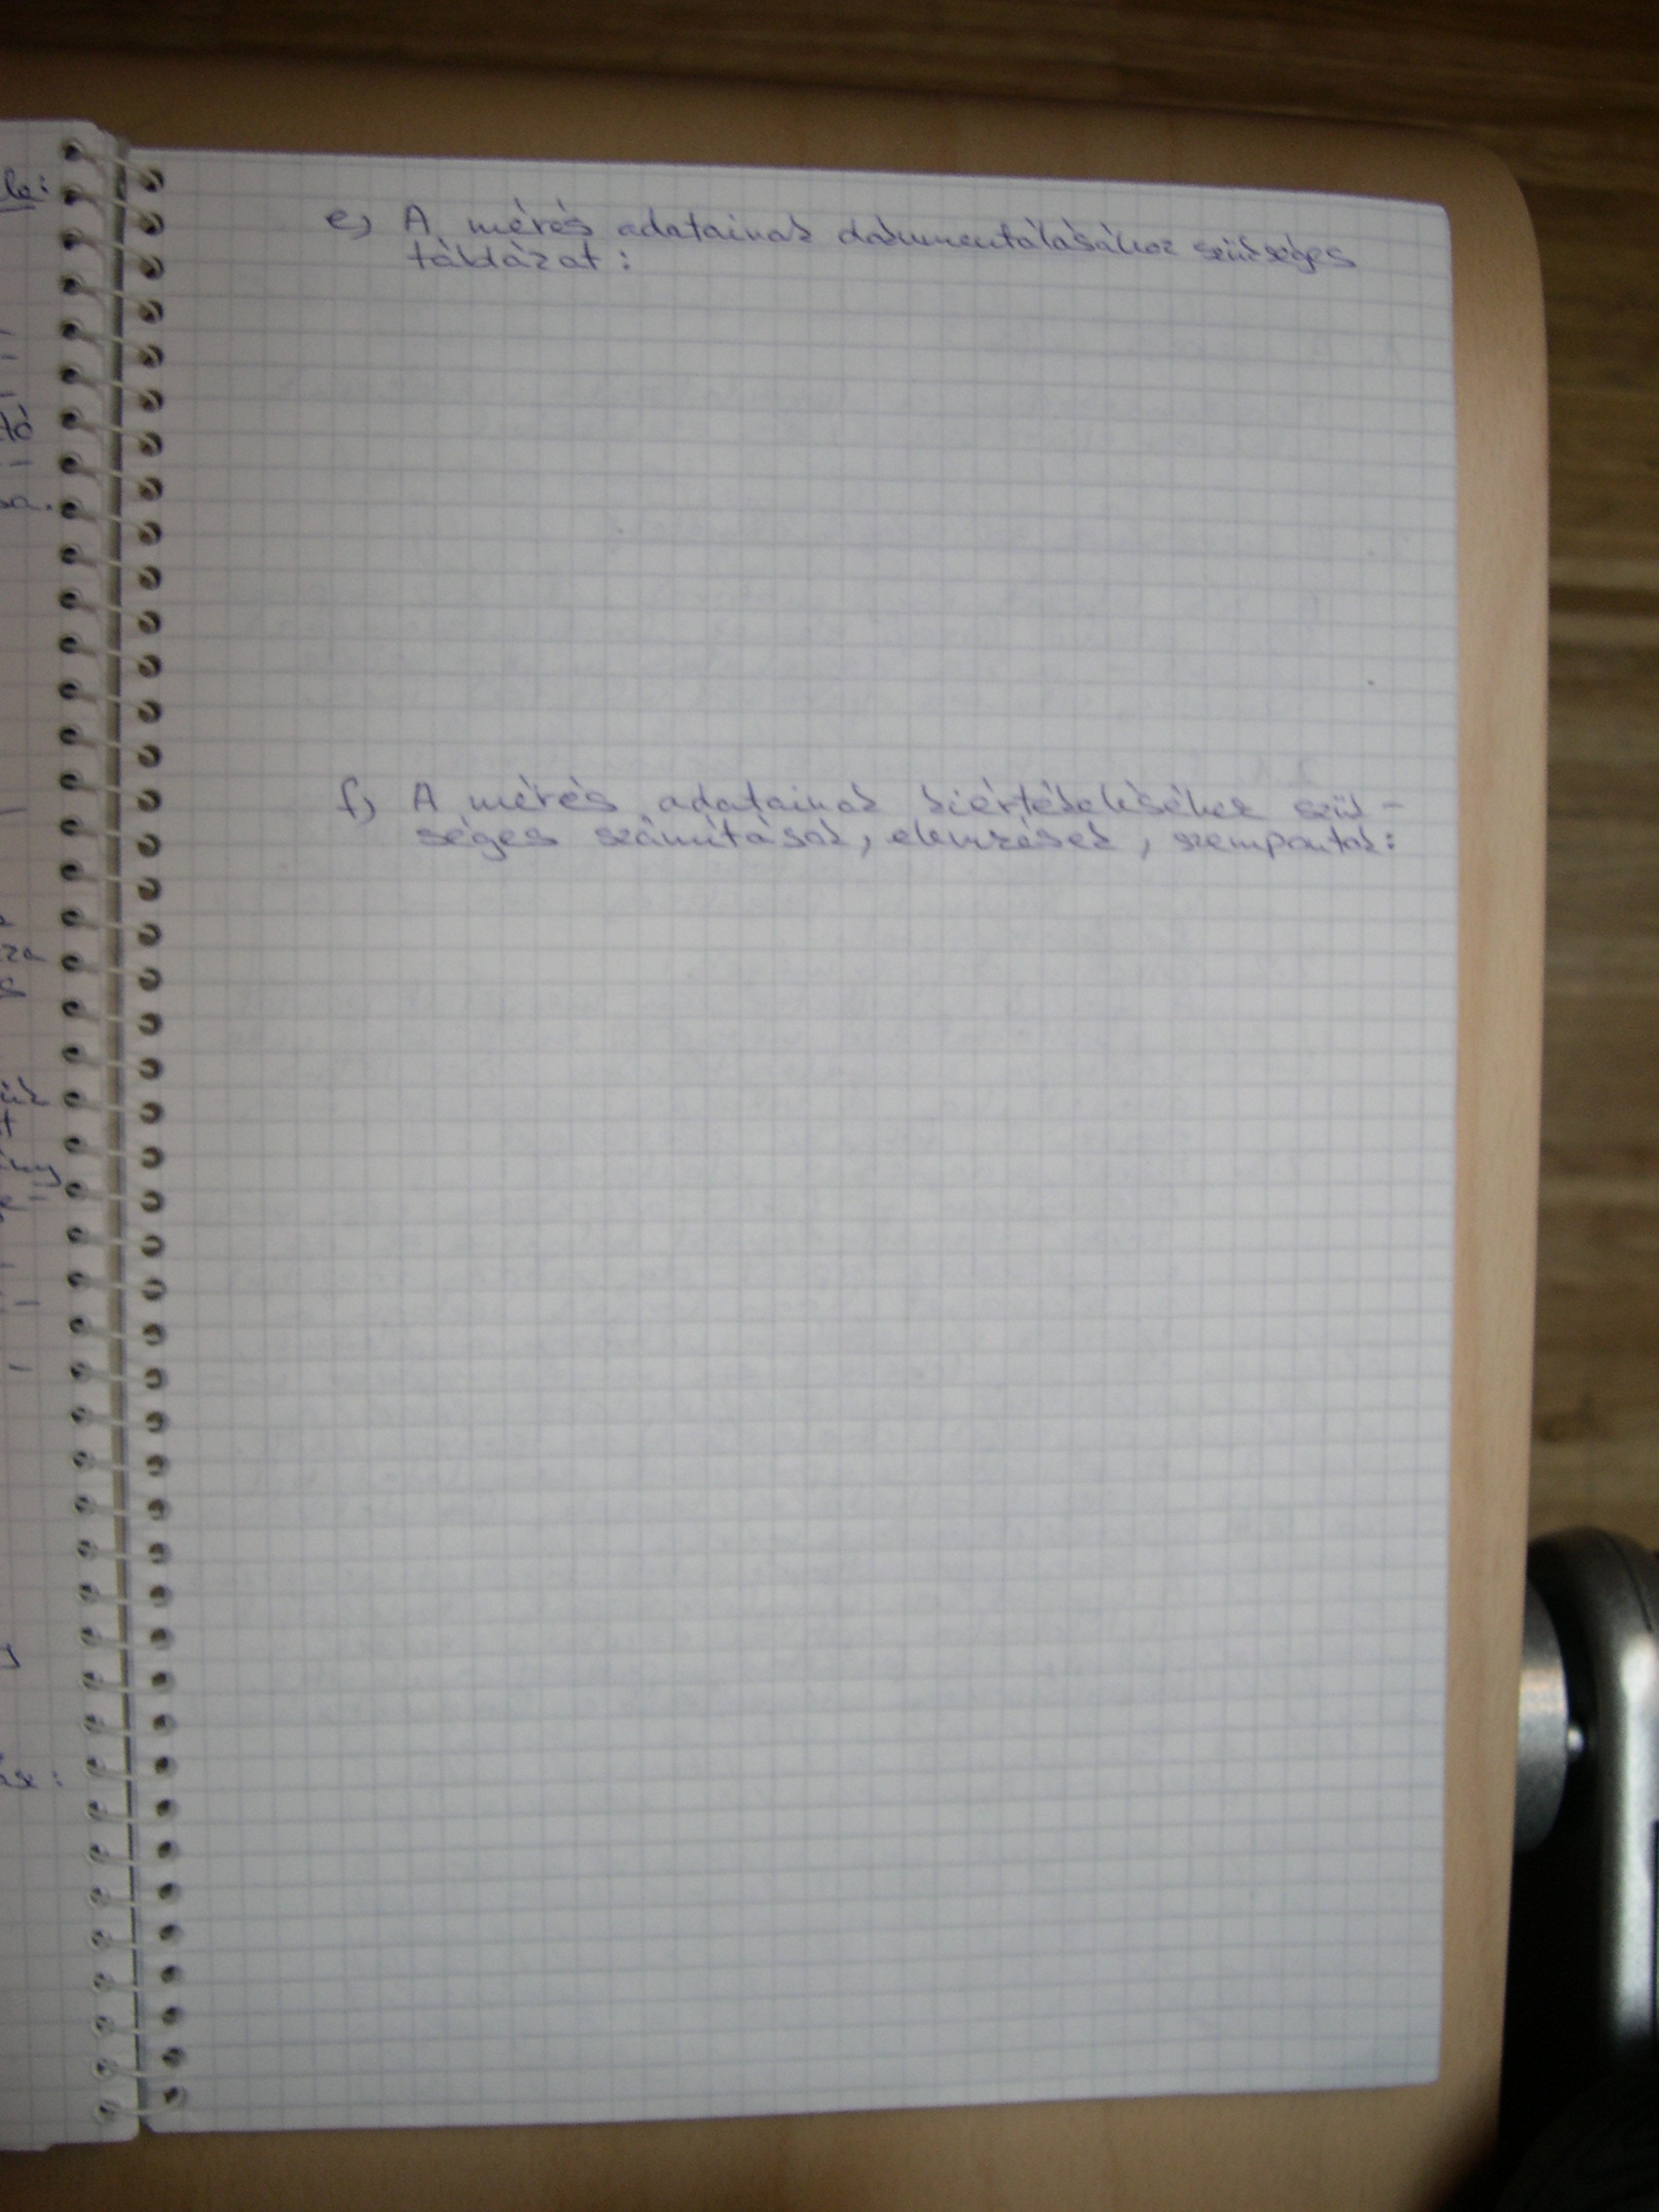 e, A mérés adatainak dokumentálásához szükséges
táblázat :
f, A mérés adatainak kiértékeléséhez szük -
séges számítások, elemzések, szempontok :